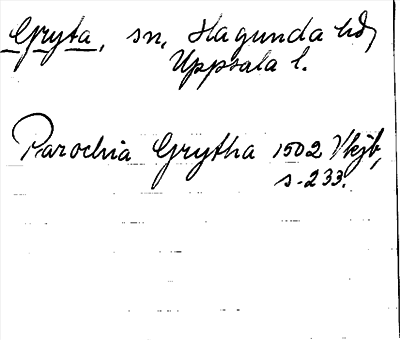 Gryta, sn, Hagunda hd,
Uppsala l.
Parochia Grytha 1502 Vkjb,
s. 233.